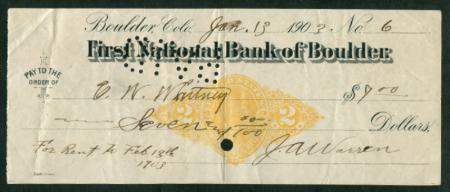 Boulder, Colo. Jan. 13 1903 No. 6
First National Bank of Boulder
PAY TO THE ORDER OF
C. W. Whitney $7.00
Seven and 00/100 Dollars.
2 2
For Rent to Feb 13th 1903
J A Warren